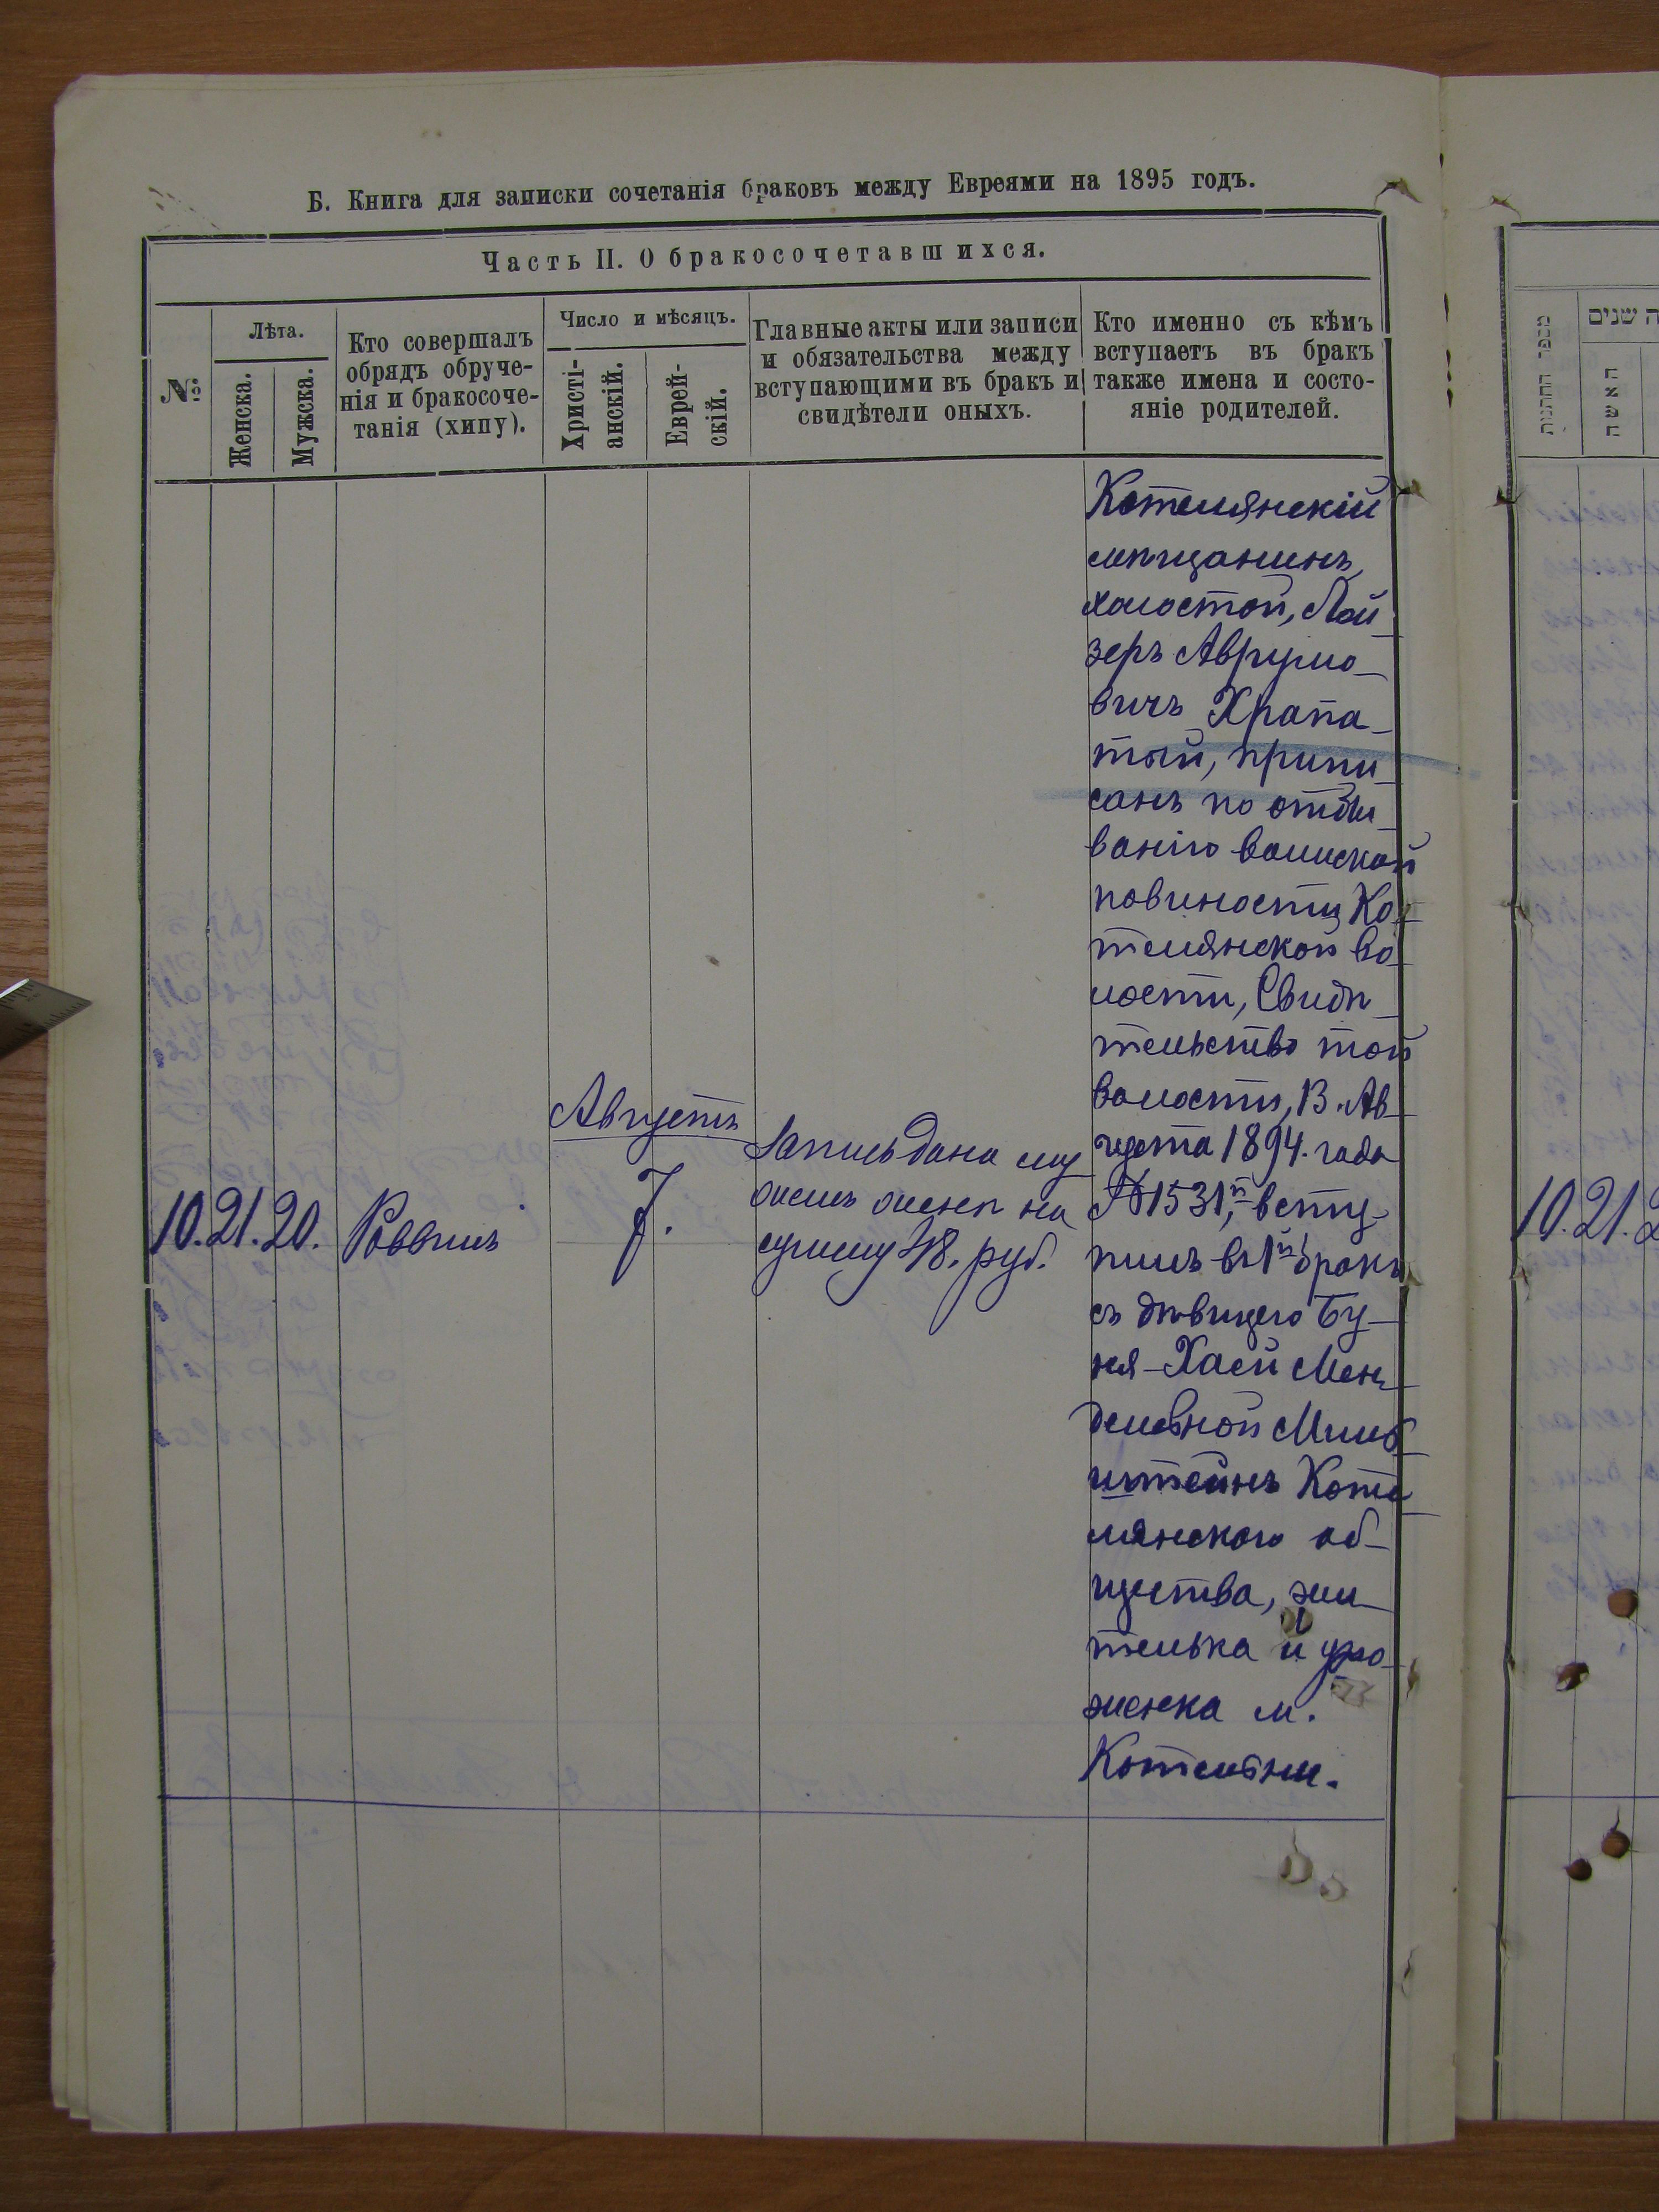 Б. Книга для записки сочетанія браковъ между Евреями на 1895 годъ.
Часть II. О бракосочетавшихся.
№
Лѣта.
Женска.
Мужска.
Кто совершалъ
обрядъ обруче-
нія и бракосоче-
танія (хипу).
Число и мѣсяцъ.
Христі-
анскій.
Еврей-
скій.
Главные акты или записи
и обязательства между
вступающими въ бракъ и
свидѣтели оныхъ.
Кто именно съ кѣмъ
вступаетъ въ бракъ
также имена и состо-
яніе родителей.
10. 21. 20.
Раввинъ
Августъ
7.
Запись дана му
жемъ женѣ на
сумму 48. руб.
Котелянскій
мѣщанинъ
холостой, Лей
зеръ Аврумо-
вичъ Храпа-
тый, припи-
санъ по отбы-
ванію воинской
повиности Ко-
телянской во
лости, Свидѣ-
тельство той
волости, 13. Ав-
густа 1894. года
№ 1531, всту-
пилъ въ 1й бракъ
съ дѣвицею Бу-
ня-Хаей Мен-
делевной Мило
штейнъ Коте
лянского об-
щества, жи-
телька и уро-
женка м.
Котельни.
מספר החתנות
ה שנים
האשה
10. 21. 2